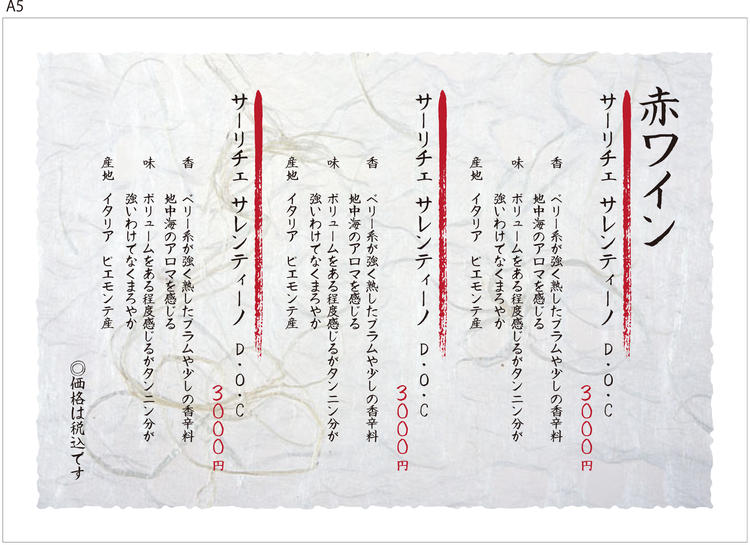 A5
赤ワイン
サーリチェ サレンティーノ D.O.C
3000円
香 ベリー系が強く熟したプラムや少しの香辛料
地中海のアロマを感じる
味 ボリュームをある程度感じるがタンニン分が
強いわけでなくまろやか
産地 イタリア ピエモンテ産
サーリチェ サレンティーノ D.O.C
3000円
香 ベリー系が強く熟したプラムや少しの香辛料
地中海のアロマを感じる
味 ボリュームをある程度感じるがタンニン分が
強いわけでなくまろやか
産地 イタリア ピエモンテ産
サーリチェ サレンティーノ D.O.C
3000円
香 ベリー系が強く熟したプラムや少しの香辛料
地中海のアロマを感じる
味 ボリュームをある程度感じるがタンニン分が
強いわけでなくまろやか
産地 イタリア ピエモンテ産
◎価格は税込です